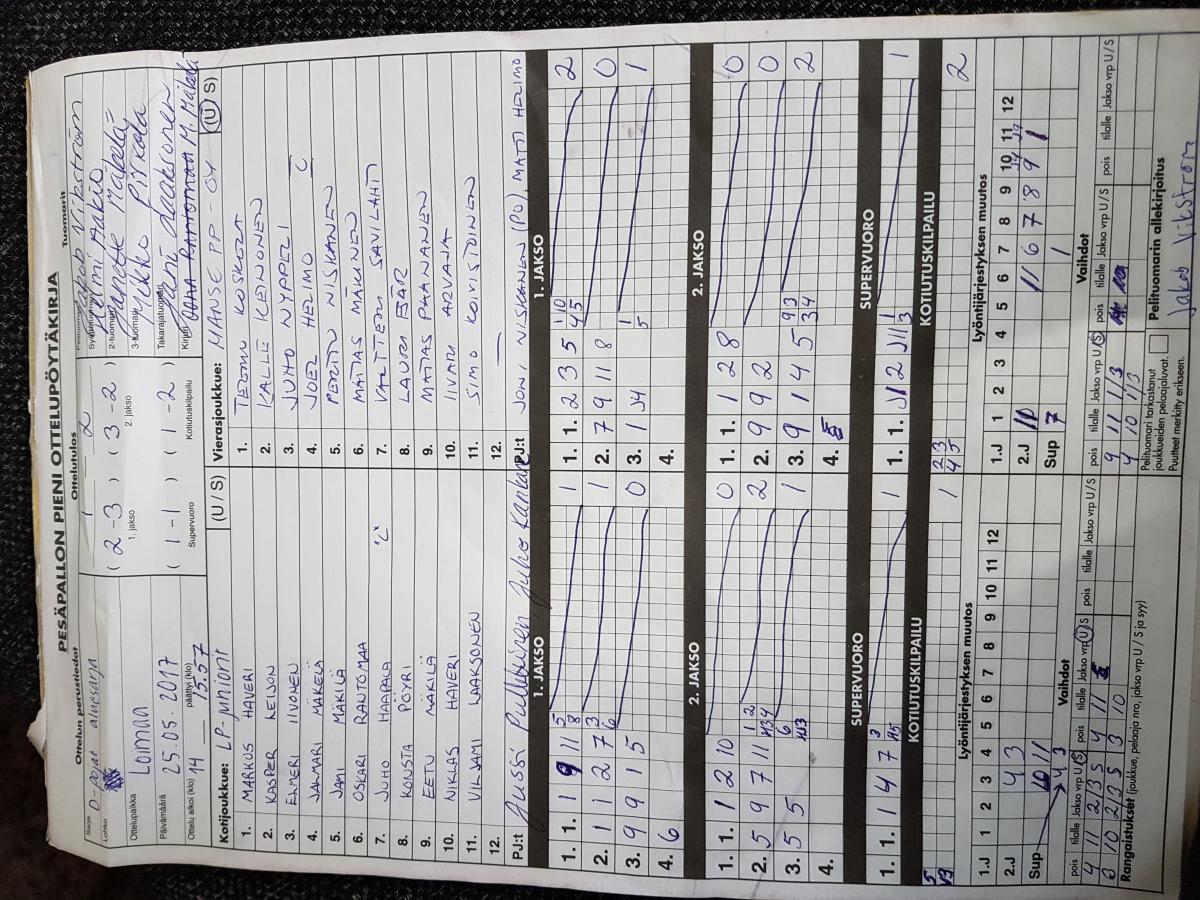 PESÄPALLON PIENI OTTELUPÖYTÄKIRJA
Ottelun perustiedot
Ottelutulos
Tuomarit
Sarja D-pojat aluesarja
Lohko
Ottelupaikka Loimaa
Päivämäärä 25.05.2017
Ottelu alkoi (klo) 14
päättyi (klo) 15.57
1 2
( 2-3 ) ( 3-2 )
1. jakso 2. jakso
( 1-1 ) ( 1-2 )
Supervuoro Kotiutuskilpailu
Pelituomari Jakob Vikström
2-tuomari Mäkelä
3-tuomari Mikko Pirkola
Takarajatuomari Jani Laaksonen
Kirjuri M. Mäkelä
Kotijoukkue: LP-juniorit (U / S)
1. MARKUS HAVERI
2. KASPER LEIJON
3. ELMERI IIVONEN
4. JALMARI MÄKELÄ
5. JAMI MÄKILÄ
6. OSKARI RANTOMAA
7. JUHO HAAPALA "C"
8. KONSTA PÖYRI
9. EETU MÄKILÄ
10. NIKLAS HAVERI
11. VILJAMI LAAKSONEN
12.
PJ:t Jussi Pullkkinen Juho Kankare
Vierasjoukkue: MANSE PP - OY (U / S)
1. TEEMU KOSKELA
2. KALLE KEINONEN
3. JUHO NYPPELI
4. JOEL HELIMO C
5. PERTTU NISKANEN
6. MATIAS MÄKINEN
7. VALTTERI SAVILAHTI
8. LAURI BÄR
9. MATIAS PAANANEN
10. IIVARI ARVANA
11. SIMO KOIVISTOINEN
12. —
PJ:t JONI NISKANEN (PJ), MATTI HELIMO
1. JAKSO
1. JAKSO
1. 1. 1 9 11 5 8 1
2. 1 1 2 7 3 6 1
3. 9 9 1 5 0
4. 6
1. 1. 2 3 5 2
2. 7 9 11 8 0
3. 1 1
4.
2. JAKSO
2. JAKSO
1. 1. 1 2 10 0
2. 5 9 7 11 2
3. 5 5 1
4.
1. 1. 1 2 8 0
2. 9 9 2 0
3. 9 1 4 5 2
4.
SUPERVUORO
SUPERVUORO
1. 1. 1 4 7 1
1. 1. 2 1
KOTIUTUSKILPAILU
KOTIUTUSKILPAILU
1
2
Lyöntijärjestyksen muutos
1 2 3 4 5 6 7 8 9 10 11 12
1.J
2.J 4 3
Sup
Lyöntijärjestyksen muutos
1 2 3 4 5 6 7 8 9 10 11 12
1.J
2.J 11 11 6 7 8 9
Sup 7 1
Vaihdot
pois tilalle Jakso vrp U/S pois tilalle Jakso vrp U/S pois tilalle Jakso vrp U/S
4 11 2 3 5 4 11
6 10 2 3 5 3 10
Vaihdot
pois tilalle Jakso vrp U/S pois tilalle Jakso vrp U/S pois tilalle Jakso vrp U/S
9 11 1/3
4 10 1/3
Rangaistukset (joukkue, pelaaja nro, jakso vrp U / S ja syy)
Pelituomari tarkastanut
joukkueiden pelaajaluvat.
Puutteet merkitty erikseen.
Pelituomarin allekirjoitus
Jakob Vikström